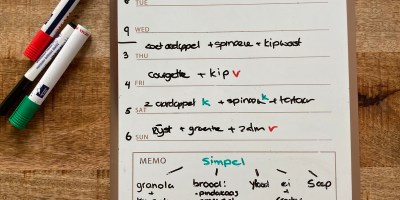 TUE
9 WED
zoet aardappel + spinazie + kipworst
3 THU
courgette + kip v
4 FRI
z aardappel k + spinazie k + tartaar
5 SAT
Rijst + groente + zalm v
6 SUN
MEMO Simpel
granola brood: ei Soep
+ - pindakaas